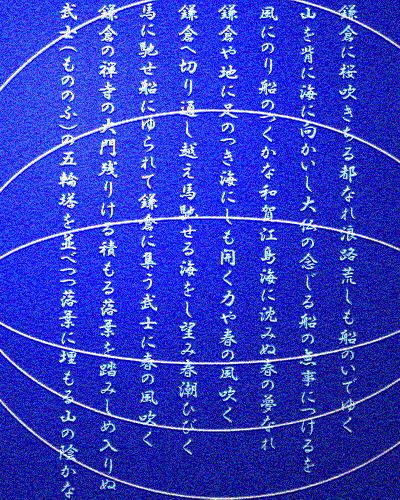 鎌倉に桜吹きちる都なれ浪路荒しも船のいでゆく
山を背に海に向かいし大仏の念じる船の無事につけるを
風にのり船のつくかな和賀江島海に沈みぬ春の夢なれ
鎌倉や地に足のつき海にしも開く力や春の風吹く
鎌倉へ切り通し越え馬馳せる海をし望み春潮ひびく
馬に馳せ船にゆられて鎌倉に集う武士に春の風吹く
鎌倉の禅寺の大門残りける積もる落葉を踏みしめ入りぬ
武士(もののふ)の五輪塔を並べつつ落葉に埋もる山の陰かな